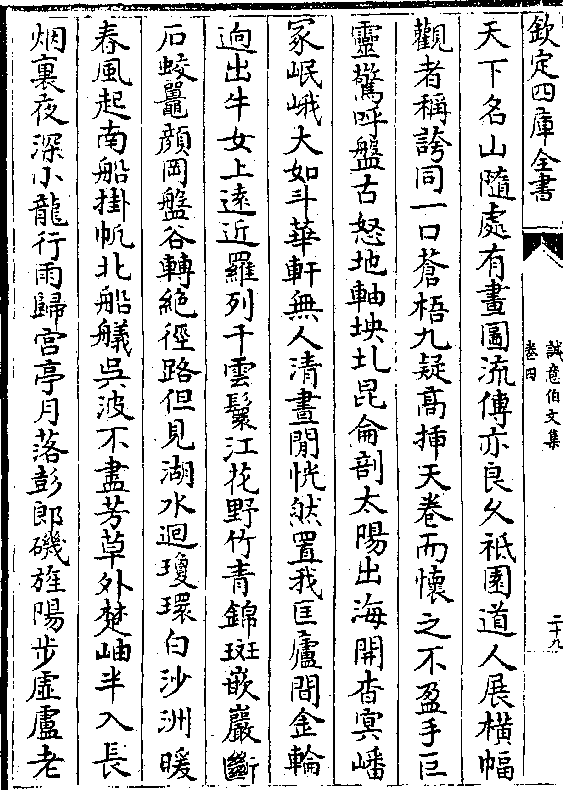 欽定四庫全書
誠意伯文集
卷四
二十九
天下名山隨處有畫圖流傳亦良久祗園道人展橫幅
觀者稱誇同一口蒼梧九疑高揷天卷而懷之不盈手巨
靈驚呼盤古怒地軸坱圠昆侖剖太陽出海開杳冥嶓
冢岷峨大如斗華軒無人清晝閒恍然置我匡廬間金輪
逈出牛女上遠近羅列千雲鬟江花野竹青錦斑嵌巖斷
石蛟鼉顔岡盤谷轉絶徑路但見湖水迴瓊環白沙洲暖
春風起南船掛帆北船艤吳波不盡芳草外楚岫半入長
烟裏夜深小龍行雨歸宮亭月落彭郎磯旌陽步虛盧老